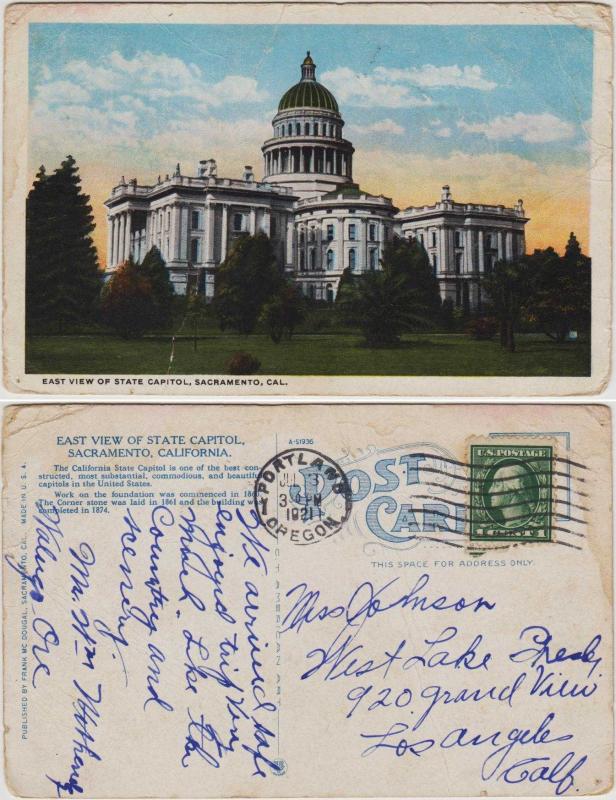 EAST VIEW OF STATE CAPITOL, SACRAMENTO, CAL.
EAST VIEW OF STATE CAPITOL,
SACRAMENTO, CALIFORNIA.
The California State Capitol is one of the best con-
structed, most substantial, commodious, and beautiful
capitols in the United States.
Work on the foundation was commenced in
The Corner stone was laid in 1861 and the building was
completed in 1874.
A-51936
POST
CARD
THIS SPACE FOR ADDRESS ONLY.
PORTLAND
3 PM
1921
OREGON
U.S. POSTAGE
PUBLISHED BY FRANK MC DOUGAL, SACRAMENTO, CAL. MADE IN U.S.A.
We arrived safe
enjoyed trip very
much. Like the
Country and
scenery.
Mr. Wm
Ore
Miss Johnson
West Lake Presby
920 Grand View
Los Angeles
Calf.